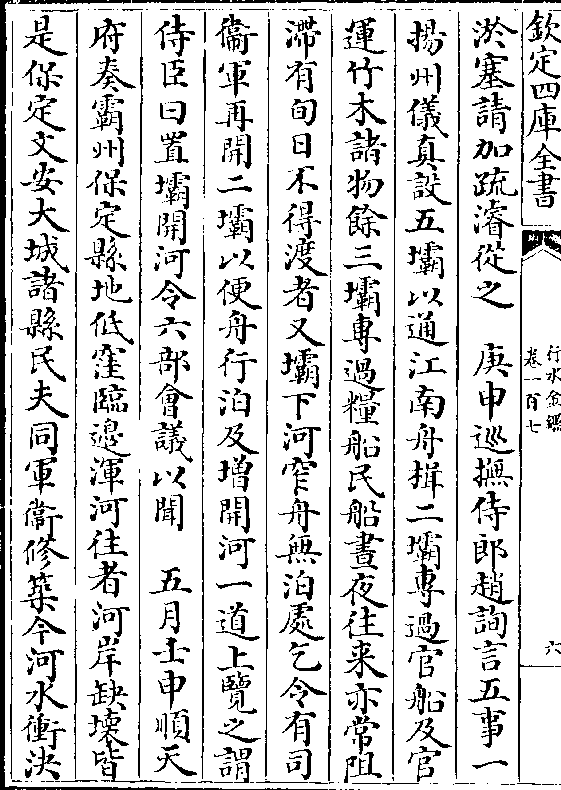 欽定四庫全書
行水金鑑
卷一百七
六
淤塞請加疏濬從之　庚申巡撫侍郎趙詢言五事一
揚州儀真設五壩以通江南舟揖二壩專過官船及官
運竹木諸物餘三壩專過糧船民船晝夜往来亦常阻
滯有旬日不得渡者又壩下河窄舟無泊處乞令有司
衞軍再開二壩以便舟行泊及增開河一道上覽之謂
侍臣曰置壩開河令六部會議以聞　五月壬申順天
府奏霸州保定縣地低窪臨邉渾河往者河岸缺壊皆
是保定文安大城諸縣民夫同軍衞修築今河水衝決